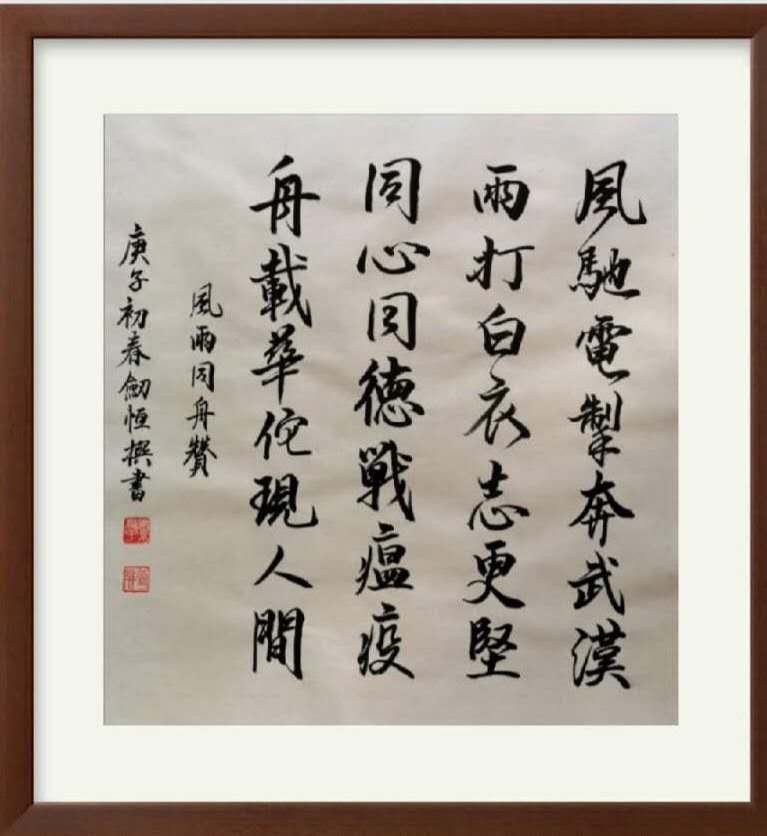 風馳電掣奔武漢
雨打白衣志更堅
同心同德戰瘟疫
舟載華佗現人間
風雨同舟贊
庚子初春劒恒撰書